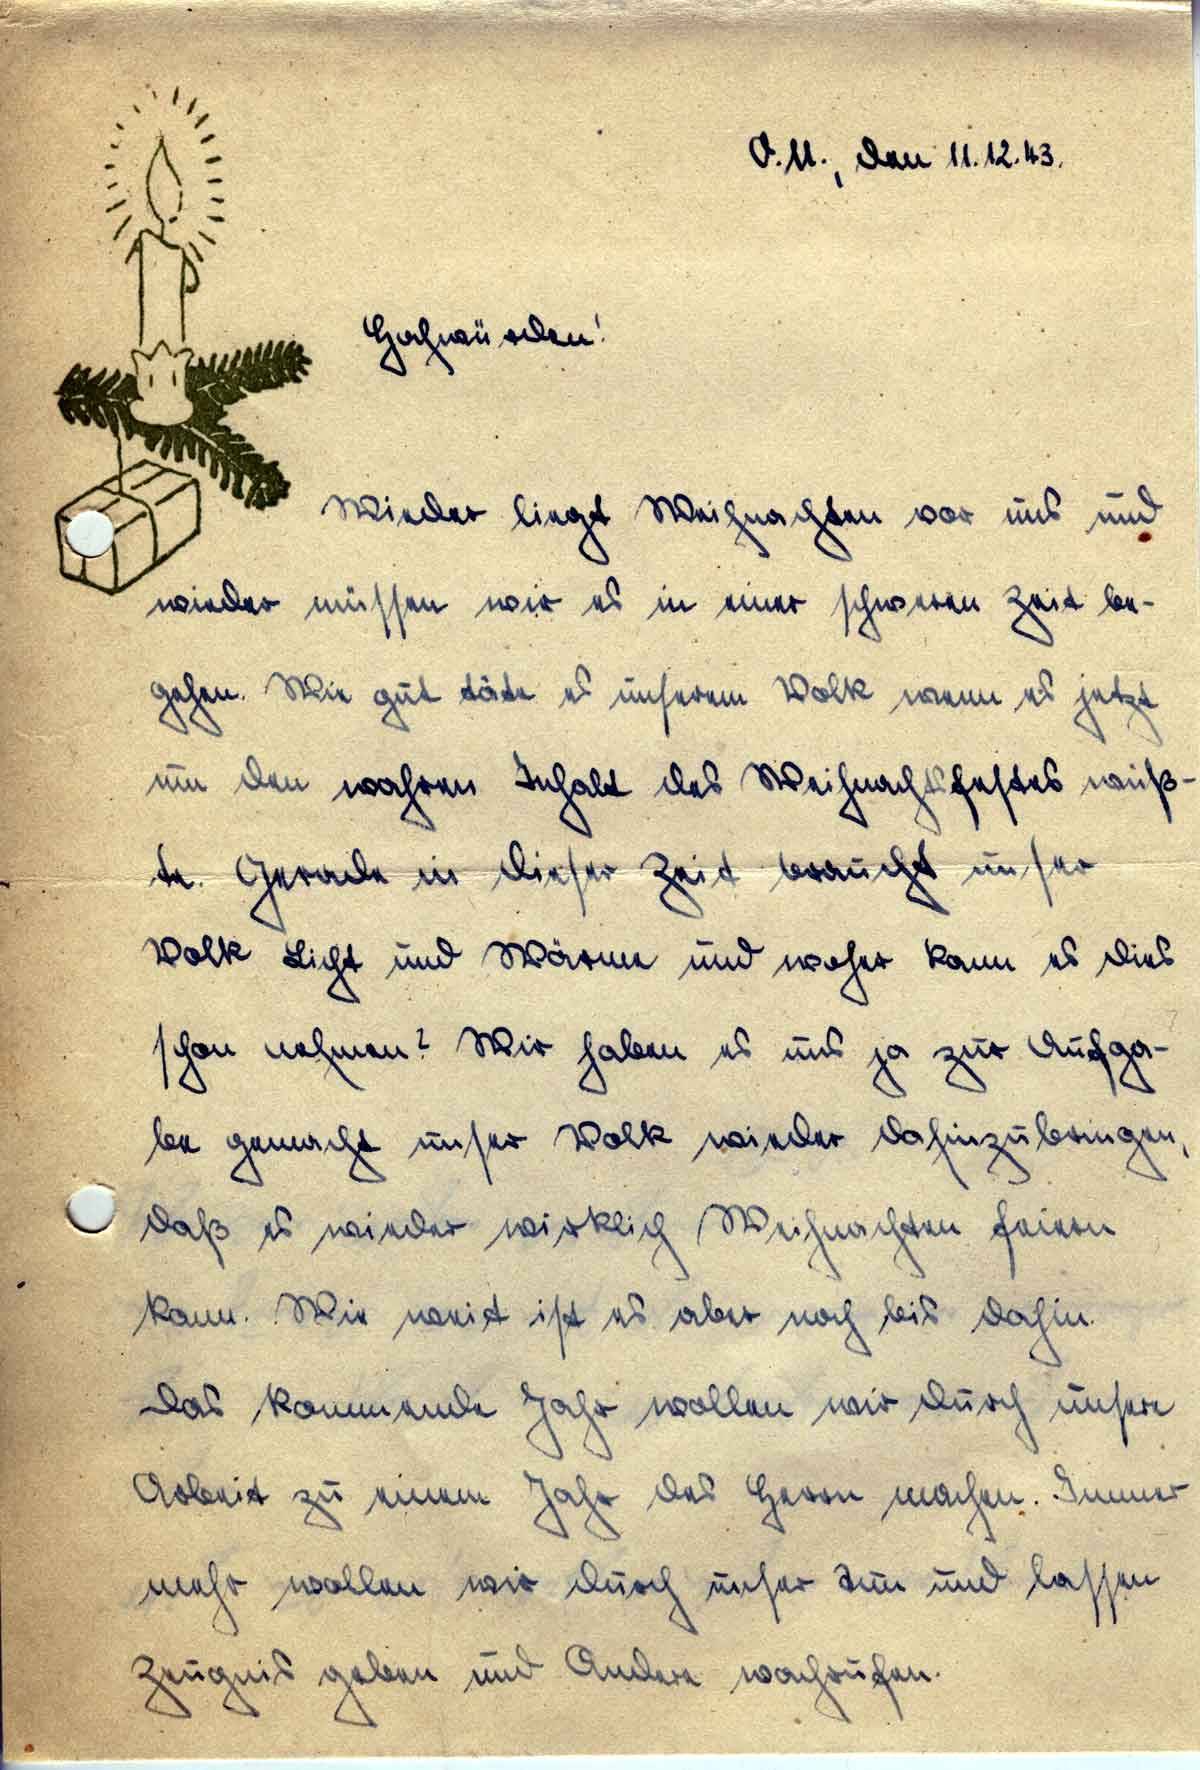 O.U., den 11.12.43.
Hochwürden!
Wieder liegt Weihnachten vor uns und
wieder müssen wir es in einer schweren Zeit be-
gehen. Wie gut täte es unserem Volk wenn es jetzt
um den wahren Inhalt des Weihnachtsfestes wuß-
te. Gerade in dieser Zeit braucht unser
Volk Licht und Wärme und woher kann es dies
schon nehmen? Wir haben es uns ja zur Aufga-
be gemacht unser Volk wieder dahinzubringen,
daß es wieder wirklich Weihnachten feiern
kann. Wie weit ist es aber noch bis dahin.
Das kommende Jahr wollen wir durch unsere
Arbeit zu einem Jahr des Herrn machen. Immer
mehr wollen wir durch unser Tun und lassen
Zeugnis geben und Andere wachrufen.